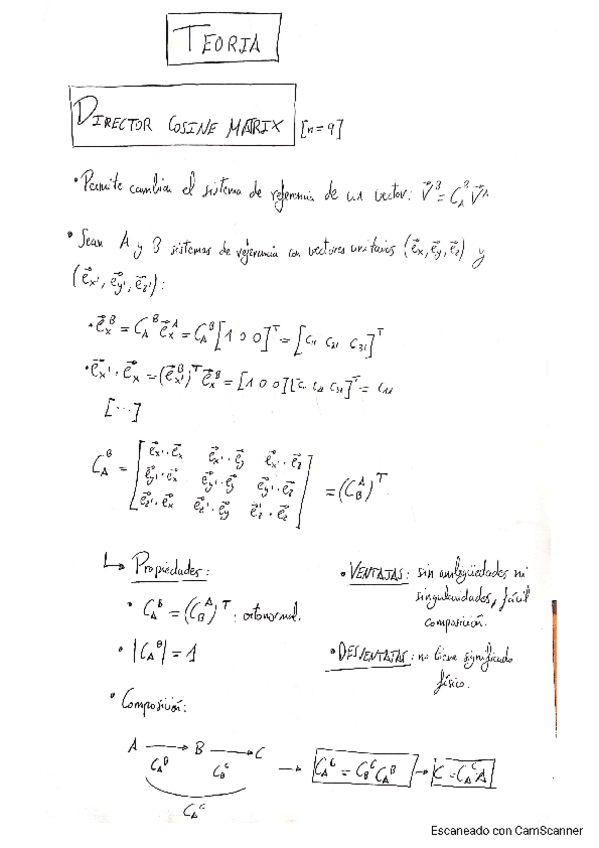 TEORIA
DIRECTOR COSINE MATRIX [n=9]
• Permite cambiar el sistema de referencia de un vector: V⃗ᴮ = C_Aᴮ V⃗ᴬ
• Sean A y B sistemas de referencia con vectores unitarios (e⃗x, e⃗y, e⃗z) y
(e⃗x', e⃗y', e⃗z'):
• e⃗xᴮ = C_Aᴮ e⃗xᴬ = C_Aᴮ [1 0 0]ᵀ = [C11 C21 C31]ᵀ
• e⃗x' · e⃗x = (e⃗x'ᴮ)ᵀ e⃗xᴮ = [1 0 0][C11 C21 C31]ᵀ = C11
[...]
C_Aᴮ = [e⃗x'·e⃗x e⃗x'·e⃗y e⃗x'·e⃗z
e⃗y'·e⃗x e⃗y'·e⃗y e⃗y'·e⃗z
e⃗z'·e⃗x e⃗z'·e⃗y e⃗z'·e⃗z] = (C_Bᴬ)ᵀ
↳ Propiedades:
• C_Aᴮ = (C_Bᴬ)ᵀ : ortonormal.
• |C_Aᴮ| = 1
• VENTAJAS: sin ambigüedades ni
singularidades, fácil
composición.
• DESVENTAJAS: no tiene significado
físico.
• Composición:
A → B → C
C_Aᴮ C_Bᶜ
C_Aᶜ
→ C_Aᶜ = C_Bᶜ C_Aᴮ → C = C_Aᶜ A
Escaneado con CamScanner